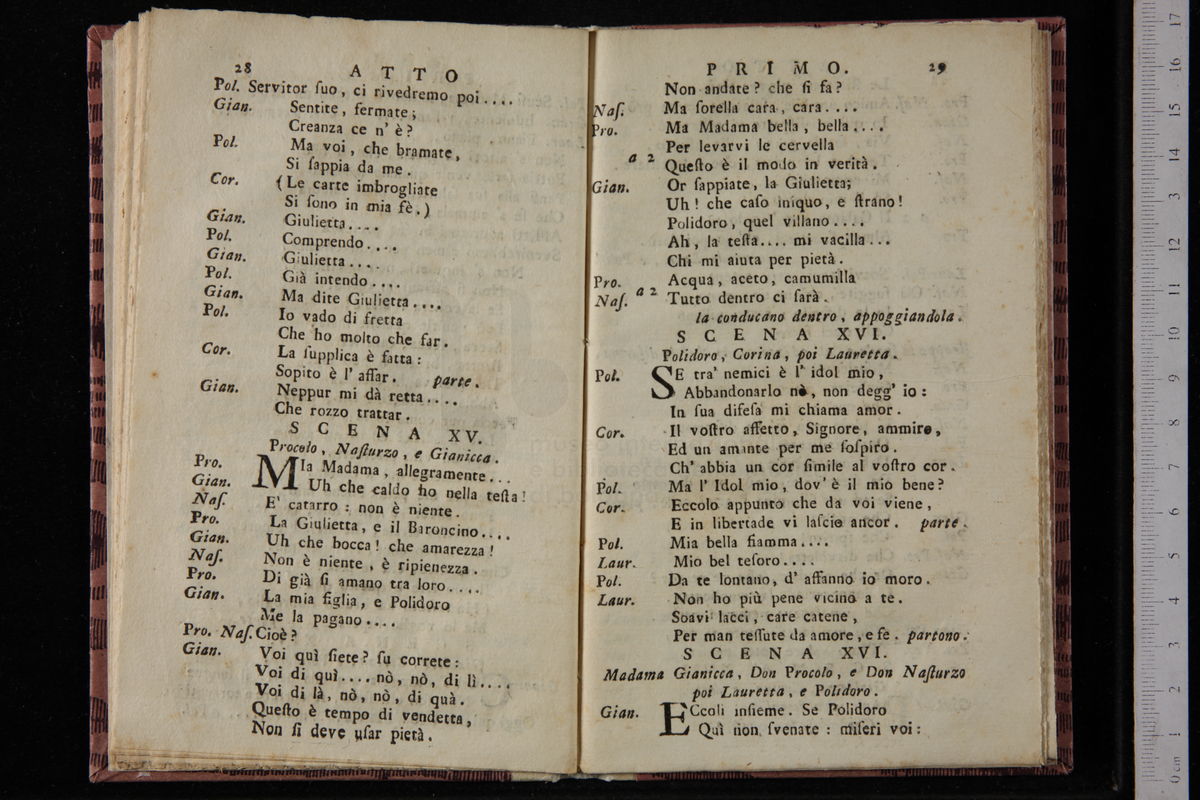 28
A T T O
Pol. Servitor ſuo, ci rivedremo poi....
Gian. Sentite, fermate;
Creanza ce n' è?
Pol. Ma voi, che bramate,
Si ſappia da me.
Cor. (Le carte imbrogliate
Si ſono in mia fè.)
Gian. Giulietta....
Pol. Comprendo....
Gian. Giulietta....
Pol. Già intendo....
Gian. Ma dite Giulietta....
Pol. Io vado di fretta
Che ho molto che far.
Cor. La ſupplica è fatta:
Sopito è l' affar. parte.
Gian. Neppur mi dà retta....
Che rozzo trattar.
S C E N A XV.
Procolo, Naſturzo, e Gianicca.
Pro. MIa Madama, allegramente...
Gian. Uh che caldo ho nella teſta!
Naſ. E' catarro: non è niente.
Pro. La Giulietta, e il Baroncino....
Gian. Uh che bocca! che amarezza!
Naſ. Non è niente, è ripienezza.
Pro. Di già ſi amano tra loro....
Gian. La mia figlia, e Polidoro
Me la pagano....
Pro. Naſ. Cioè?
Gian. Voi quì ſiete? ſu correte:
Voi di quì.... nò, nò, di lì....
Voi di là, nò, nò, di quà.
Queſto è tempo di vendetta,
Non ſi deve uſar pietà.
P R I M O.
29
Non andate? che ſi fa?
Naſ. Ma ſorella cara, cara....
Pro. Ma Madama bella, bella....
Per levarvi le cervella
a 2 Queſto è il modo in verità.
Gian. Or ſappiate, la Giulietta;
Uh! che caſo iniquo, e ſtrano!
Polidoro, quel villano....
Ah, la teſta.... mi vacilla...
Chi mi aiuta per pietà.
Pro. Acqua, aceto, camumilla
Naſ. a 2 Tutto dentro ci ſarà.
la conducano dentro, appoggiandola.
S C E N A XVI.
Polidoro, Corina, poi Lauretta.
Pol. SE tra' nemici è l' idol mio,
Abbandonarlo nò, non degg' io:
In ſua difeſa mi chiama amor.
Cor. Il voſtro affetto, Signore, ammiro,
Ed un amante per me ſoſpiro.
Ch' abbia un cor ſimile al voſtro cor.
Pol. Ma l' Idol mio, dov' è il mio bene?
Cor. Eccolo appunto che da voi viene,
E in libertade vi laſcio ancor. parte.
Pol. Mia bella fiamma....
Laur. Mio bel teſoro....
Pol. Da te lontano, d' affanno io moro.
Laur. Non ho più pene vicino a te.
Soavi lacci, care catene,
Per man teſſute da amore, e fe. partono.
S C E N A XVI.
Madama Gianicca, Don Procolo, e Don Naſturzo
poi Lauretta, e Polidoro.
Gian. ECcoli inſieme. Se Polidoro
Quì non ſvenate: miſeri voi:
0 cm 1 2 3 4 5 6 7 8 9 10 11 12 13 14 15 16 17